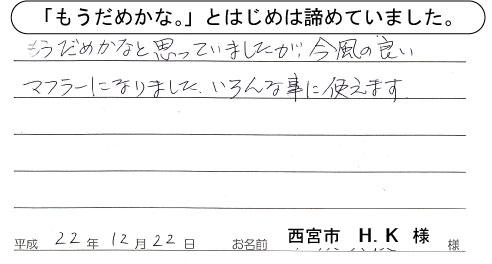 「もうだめかな。」とはじめは諦めていました。
もうだめかなと思っていましたが、今風の良い
マフラーになりました、いろんな事に使えます
平成 22 年 12 月 22 日 お名前 西宮市 H.K 様 様